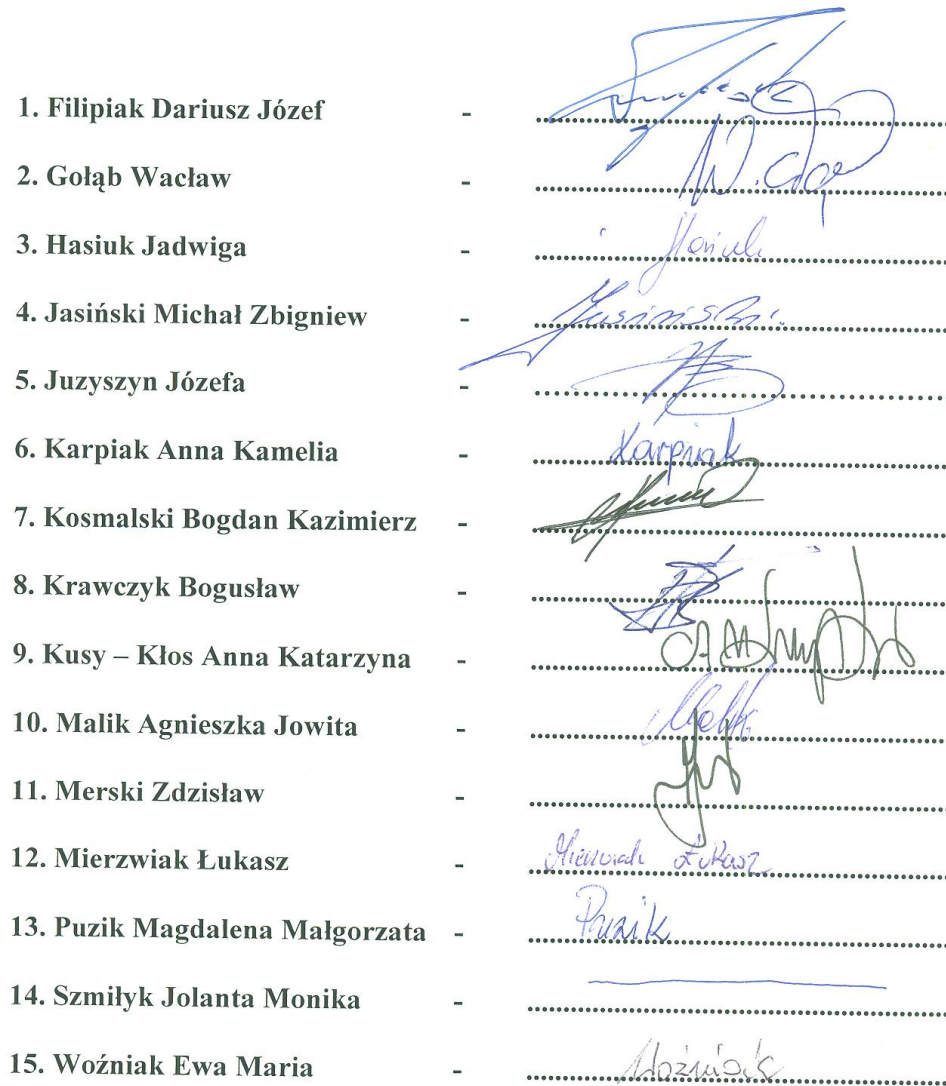 1. Filipiak Dariusz Józef -
2. Gołąb Wacław - W. Gołąb
3. Hasiuk Jadwiga - Hasiuk
4. Jasiński Michał Zbigniew - Jasiński
5. Juzyszyn Józefa -
6. Karpiak Anna Kamelia - Karpiak
7. Kosmalski Bogdan Kazimierz -
8. Krawczyk Bogusław -
9. Kusy – Kłos Anna Katarzyna -
10. Malik Agnieszka Jowita - Malik
11. Merski Zdzisław -
12. Mierzwiak Łukasz - Mierzwiak Łukasz
13. Puzik Magdalena Małgorzata - Puzik
14. Szmiłyk Jolanta Monika -
15. Woźniak Ewa Maria - Woźniak